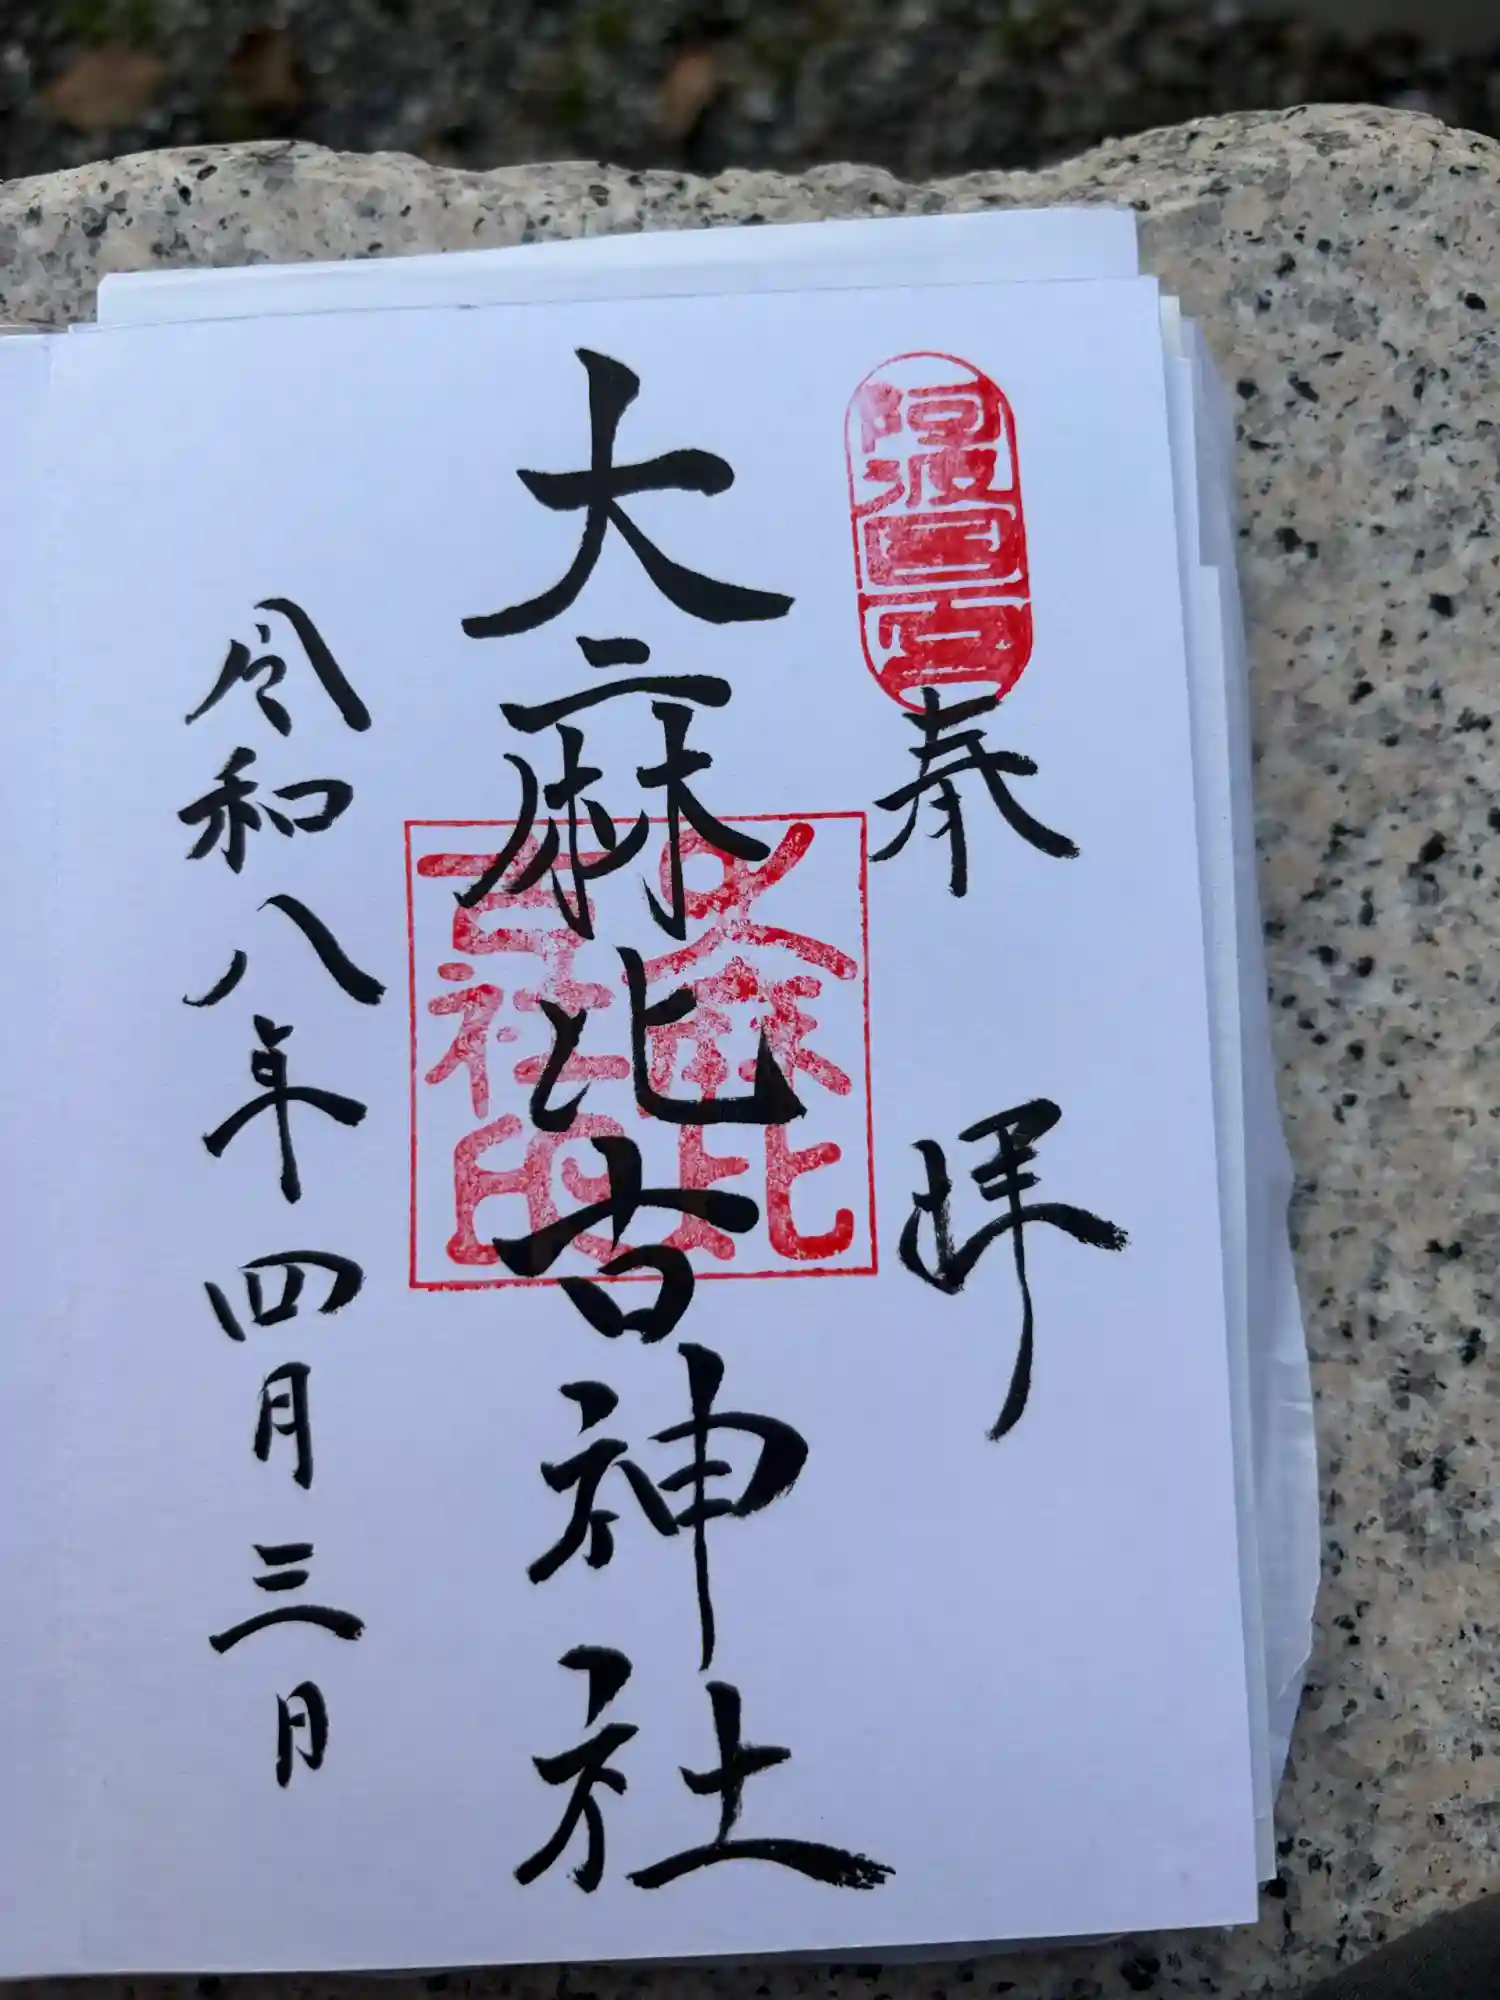 阿波國一宮
奉拝
大麻比古神社
大麻比
古社印
令和八年四月三日